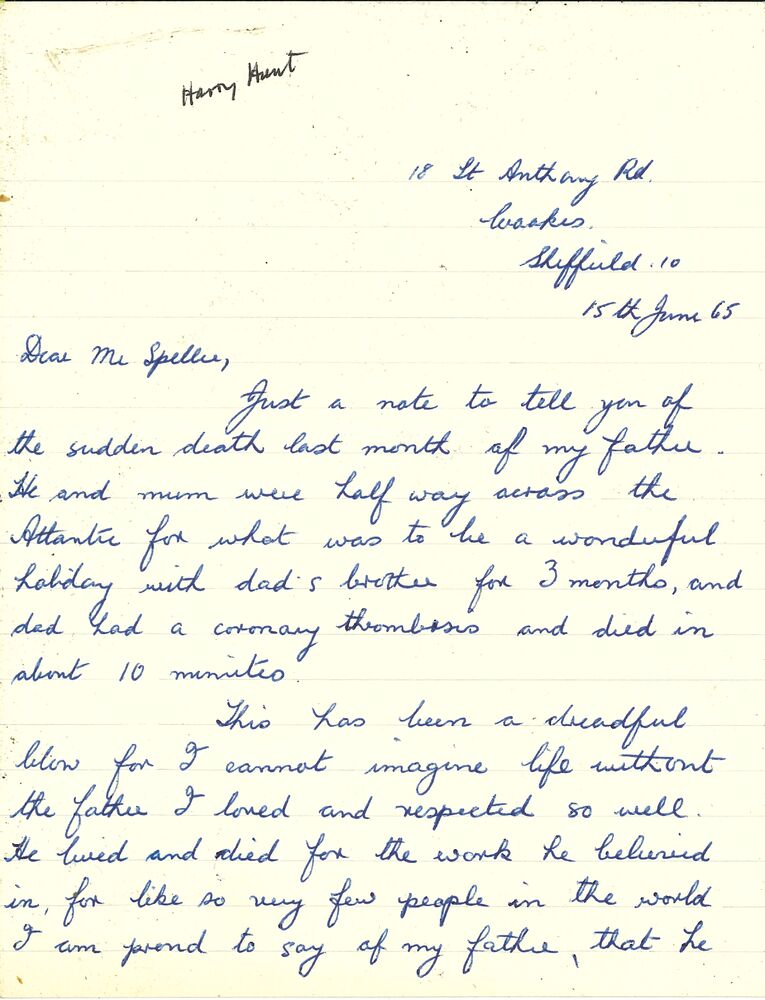 Harry Hunt
18 St Anthony Rd.
Crookes.
Sheffield. 10
15th June 65
Dear Mr Speller,
Just a note to tell you of
the sudden death last month of my father.
He and mum were half way across the
Atlantic for what was to be a wonderful
holiday with dad's brother for 3 months, and
dad had a coronary thrombosis and died in
about 10 minutes.
This has been a dreadful
blow for I cannot imagine life without
the father I loved and respected so well.
He lived and died for the work he believed
in, for like so very few people in the world
I am proud to say of my father, that he